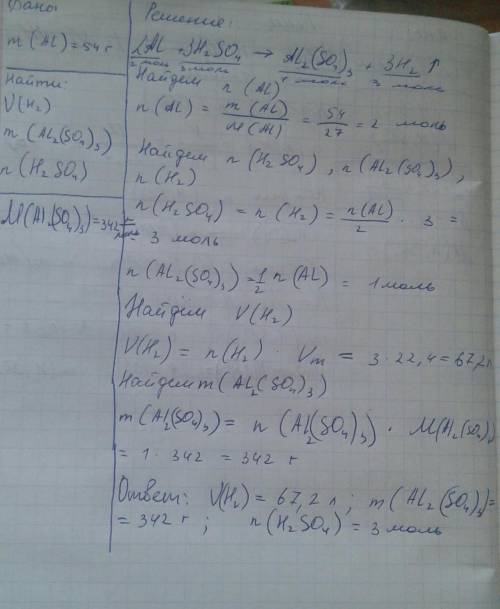 Дано
m (Al) = 54 г
Найти:
V(H₂)
m (Al₂(SO₄)₃)
n (H₂SO₄)
M(Al₂(SO₄)₃) = 342 г/моль
Решение:
2Al + 3H₂SO₄ → Al₂(SO₄)₃ + 3H₂ ↑
2 моль 3 моль 1 моль 3 моль
Найдем n (Al)
n (Al) = m (Al) / M (Al) = 54 / 27 = 2 моль
Найдем n (H₂SO₄) , n (Al₂(SO₄)₃) ,
n (H₂)
n (H₂SO₄) = n (H₂) = n(Al) / 2 · 3 =
= 3 моль
n (Al₂(SO₄)₃) = 1/2 n (Al) = 1 моль
Найдём V(H₂)
V(H₂) = n (H₂) · Vm = 3 · 22,4 = 67,2 л
Найдем m (Al₂(SO₄)₃)
m (Al₂(SO₄)₃) = n (Al₂(SO₄)₃) · M(H₂(SO₄)₃)
= 1 · 342 = 342 г
Ответ: V(H₂) = 67,2 л ; m (Al₂(SO₄)₃) =
= 342 г ; n (H₂SO₄) = 3 моль